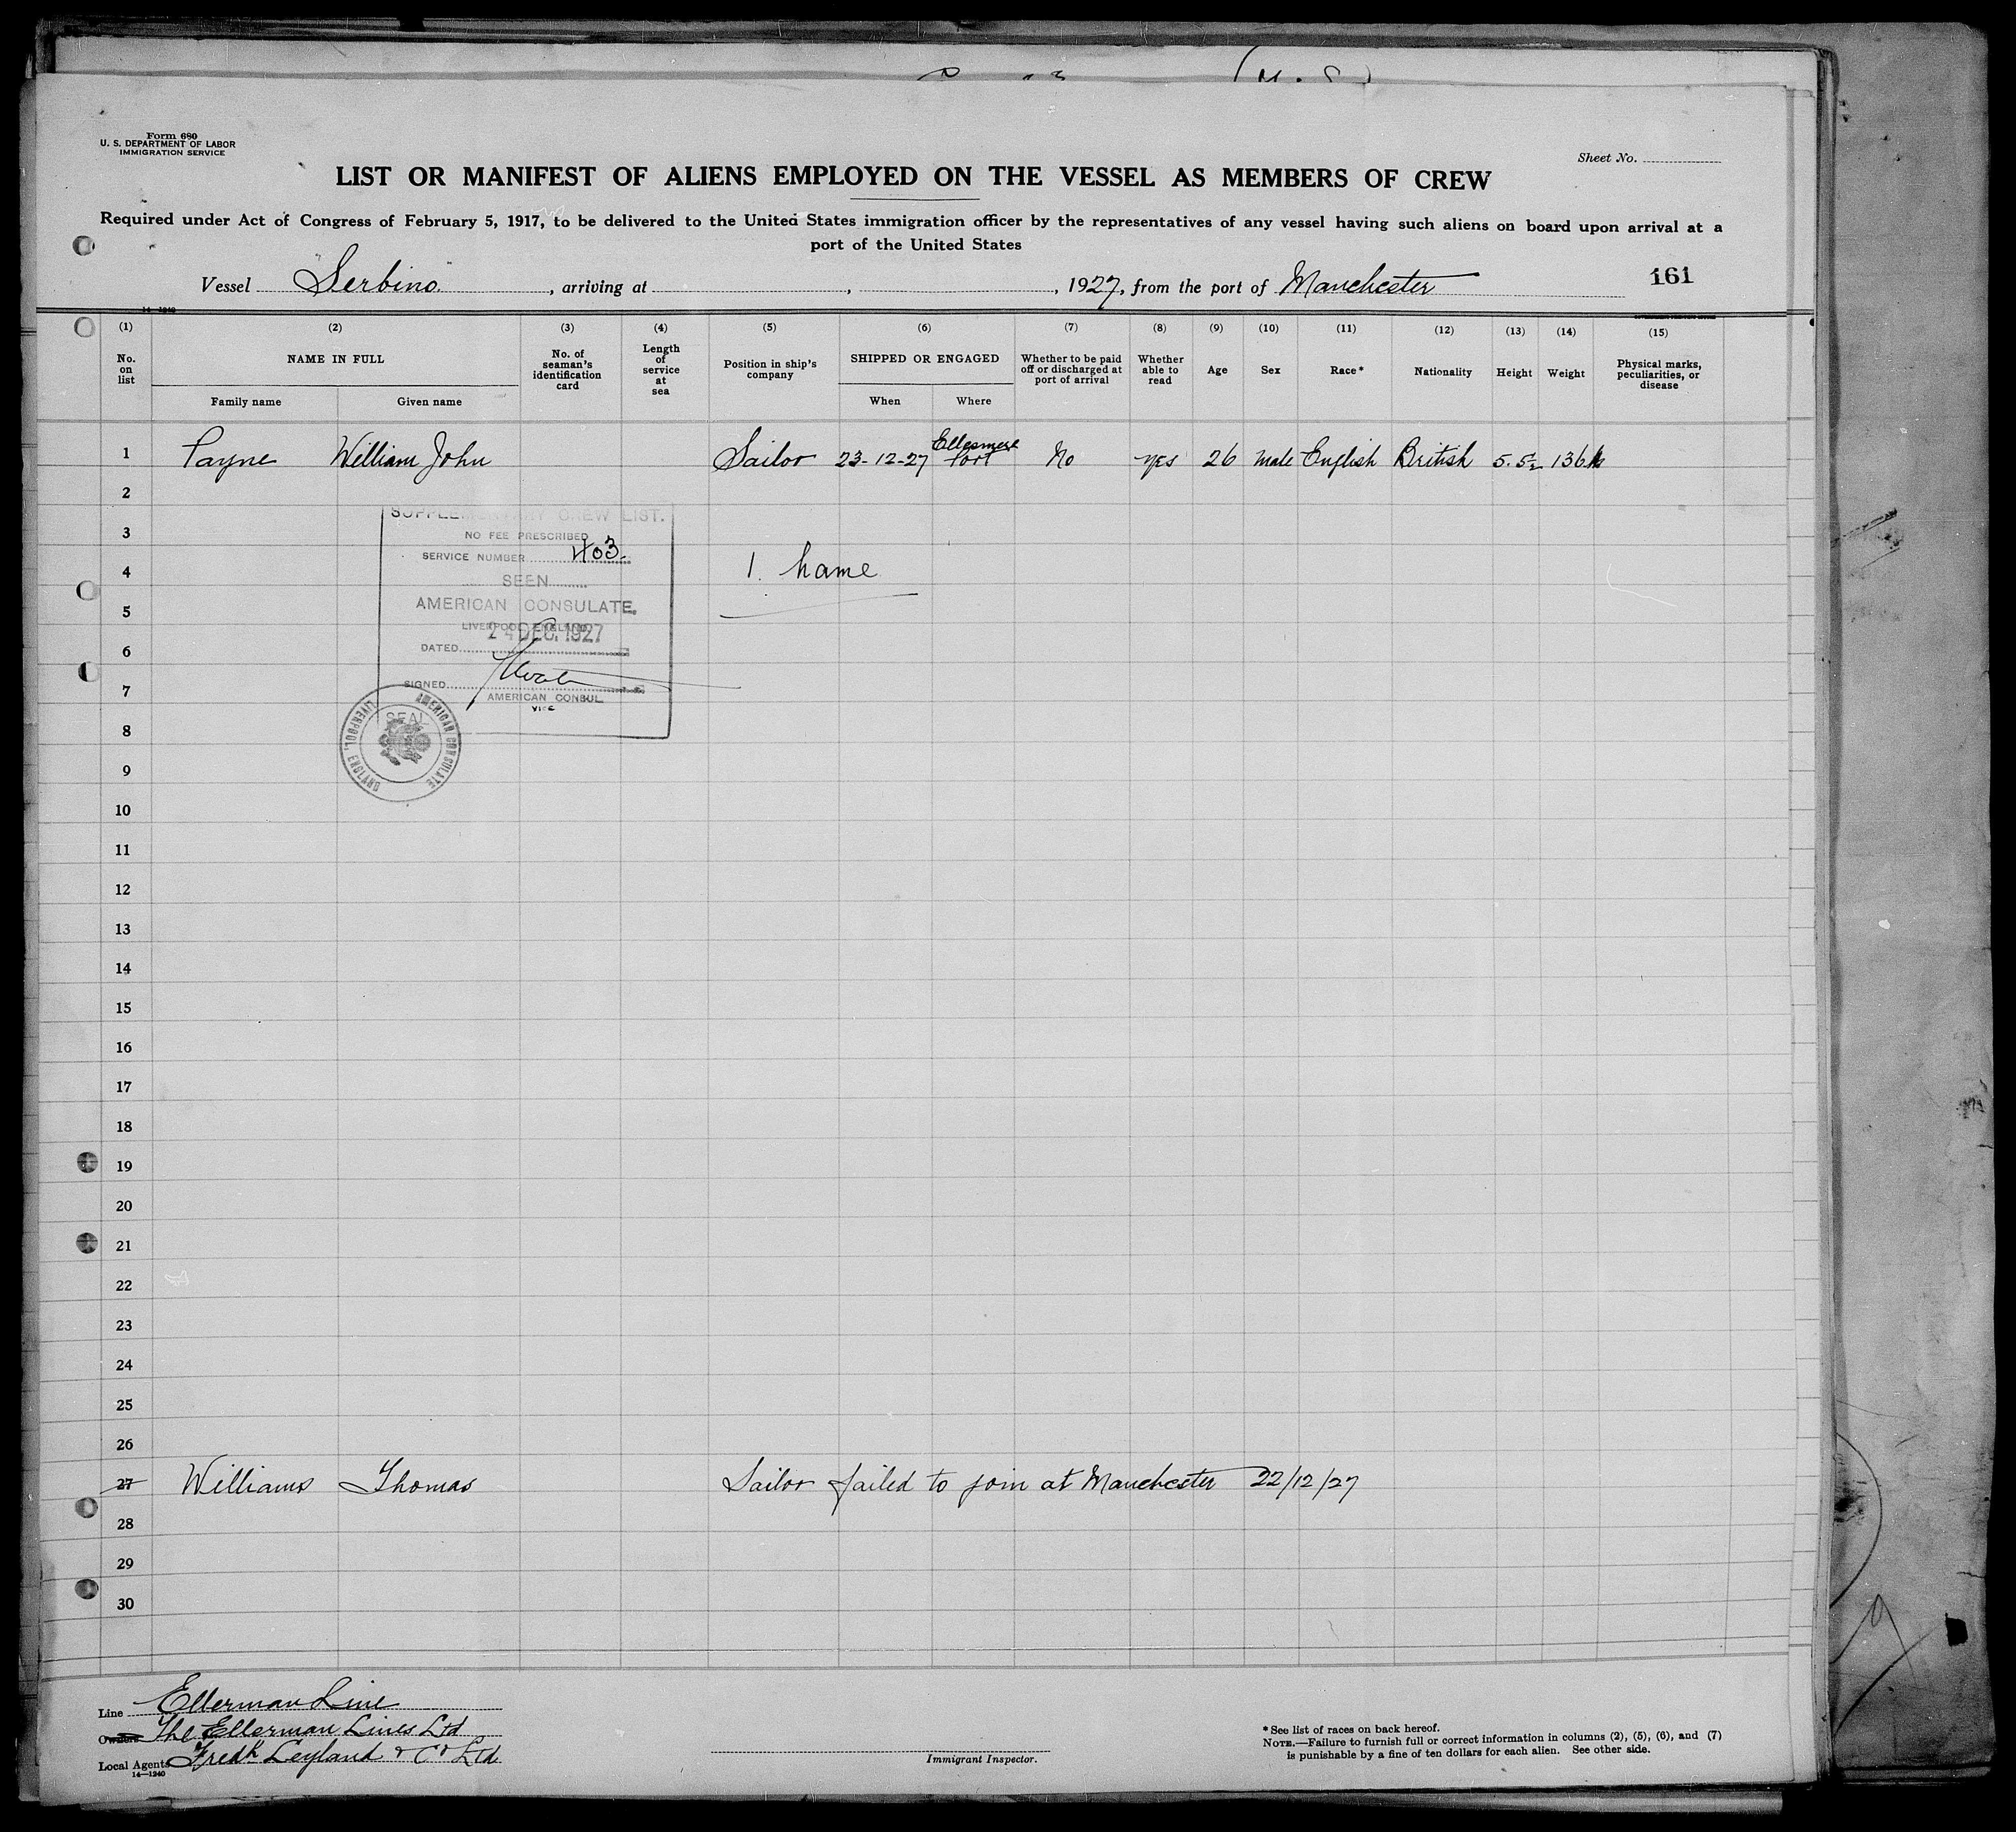 Form 680
U. S. DEPARTMENT OF LABOR
IMMIGRATION SERVICE
Sheet No.
LIST OR MANIFEST OF ALIENS EMPLOYED ON THE VESSEL AS MEMBERS OF CREW
Required under Act of Congress of February 5, 1917, to be delivered to the United States immigration officer by the representatives of any vessel having such aliens on board upon arrival at a
port of the United States
Vessel "Serbino" , arriving at , , 1927, from the port of Manchester 161
14—1240
(1) (2) (3) (4) (5) (6) (7) (8) (9) (10) (11) (12) (13) (14) (15)
No. on list
NAME IN FULL
Family name
Given name
No. of seaman's identification card
Length of service at sea
Position in ship's company
SHIPPED OR ENGAGED
When
Where
Whether to be paid off or discharged at port of arrival
Whether able to read
Age
Sex
Race*
Nationality
Height
Weight
Physical marks, peculiarities, or disease
1 Payne William John Sailor 23-12-27 Ellesmere Port No yes 26 Male English British 5.5½ 136
2
SUPPLEMENTARY CREW LIST.
3
NO FEE PRESCRIBED
SERVICE NUMBER 403.
4 1. name
SEEN
AMERICAN CONSULATE,
5
LIVERPOOL, ENGLAND
24 DEC. 1927
DATED
6
SIGNED
7
AMERICAN CONSUL
VICE
SEAL
AMERICAN CONSULATE
LIVERPOOL, ENGLAND
8
9
10
11
12
13
14
15
16
17
18
19
20
21
22
23
24
25
26
27 Williams Thomas Sailor failed to join at Manchester 22/12/27
28
29
30
Line Ellerman Line
Owners The Ellerman Lines Ltd
Local Agents Fredk Leyland & Co Ltd
14—1240
Immigrant Inspector.
* See list of races on back hereof.
NOTE.—Failure to furnish full or correct information in columns (2), (5), (6), and (7)
is punishable by a fine of ten dollars for each alien. See other side.